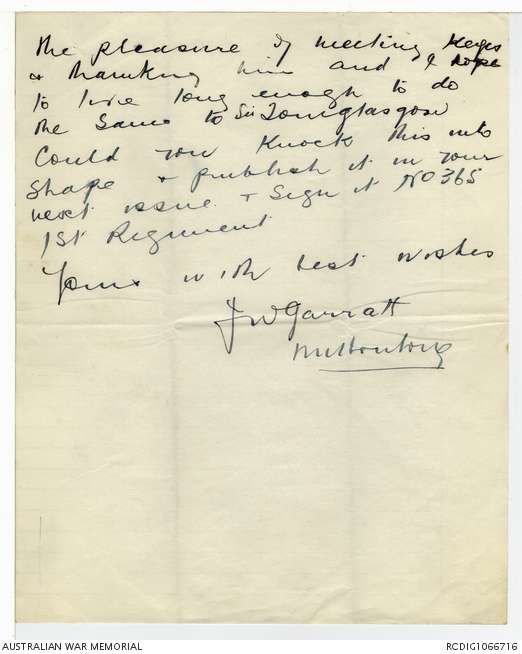 the pleasure of meeting Keyes
& thanking him and I hope
to live long enough to do
the same to Sir Tom Glasgow
Could you knock this into
shape & publish it in your
next issue & sign it No 365
1st Regiment
Yours with best wishes
J W Garratt
Mittontong
AUSTRALIAN WAR MEMORIAL
RCDIG1066716